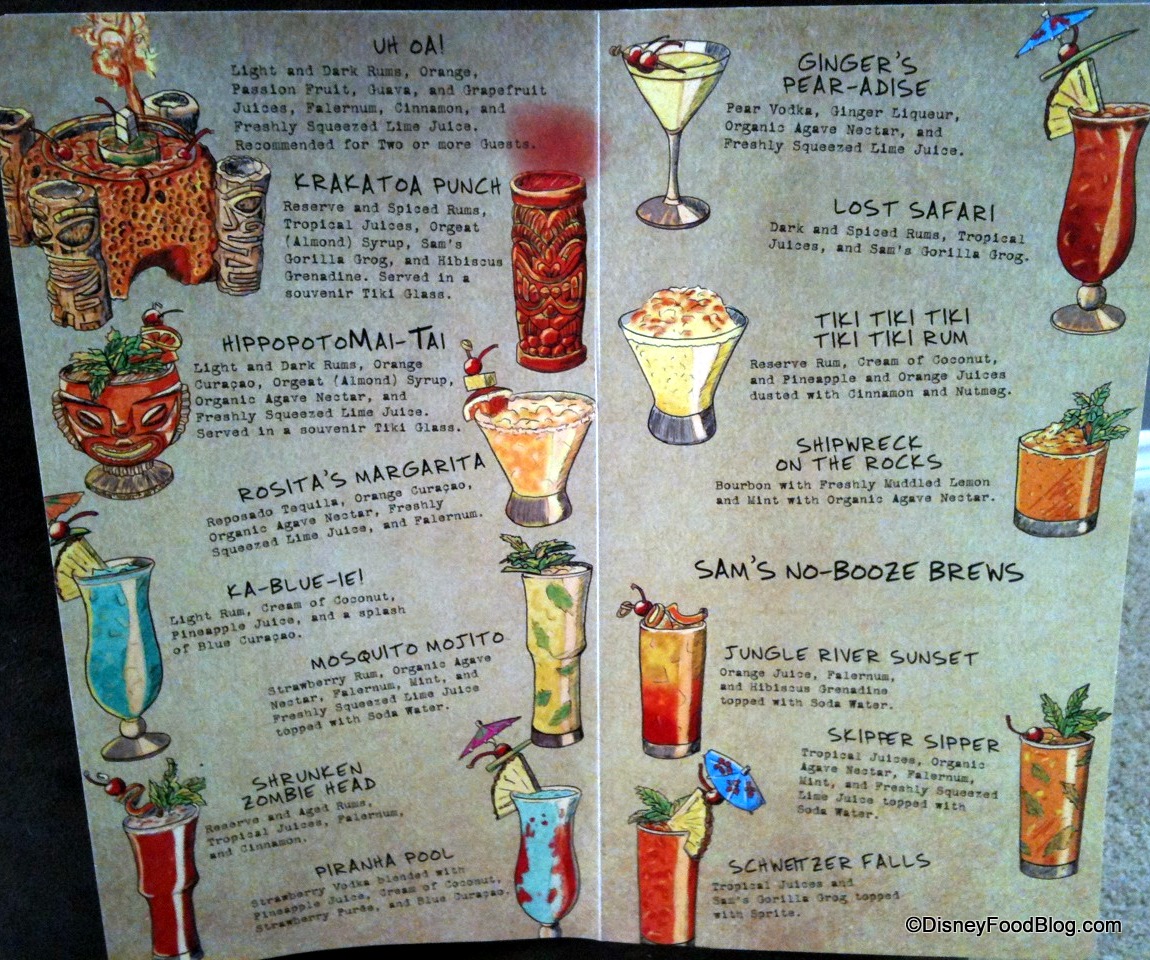 UH OA!
Light and Dark Rums, Orange,
Passion Fruit, Guava, and Grapefruit
Juices, Falernum, Cinnamon, and
Freshly Squeezed Lime Juice.
Recommended for Two or more Guests.
KRAKATOA PUNCH
Reserve and Spiced Rums,
Tropical Juices, Orgeat
(Almond) Syrup, Sam's
Gorilla Grog, and Hibiscus
Grenadine. Served in a
souvenir Tiki Glass.
HIPPOPOTOMAI-TAI
Light and Dark Rums, Orange
Curaçao, Orgeat (Almond) Syrup,
Organic Agave Nectar, and
Freshly Squeezed Lime Juice.
Served in a souvenir Tiki Glass.
ROSITA'S MARGARITA
Reposado Tequila, Orange Curaçao,
Organic Agave Nectar, Freshly
Squeezed Lime Juice, and Falernum.
KA-BLUE-IE!
Light Rum, Cream of Coconut,
Pineapple Juice, and a splash
of Blue Curaçao.
MOSQUITO MOJITO
Strawberry Rum, Organic Agave
Nectar, Falernum, Mint, and
Freshly Squeezed Lime Juice
topped with Soda Water.
SHRUNKEN
ZOMBIE HEAD
Reserve and Aged Rums,
Tropical Juices, Falernum,
and Cinnamon.
PIRANHA POOL
Strawberry Vodka blended with
Pineapple Juice, Cream of Coconut,
Strawberry Purée, and Blue Curaçao.
GINGER'S
PEAR-ADISE
Pear Vodka, Ginger Liqueur,
Organic Agave Nectar, and
Freshly Squeezed Lime Juice.
LOST SAFARI
Dark and Spiced Rums, Tropical
Juices, and Sam's Gorilla Grog.
TIKI TIKI TIKI
TIKI TIKI RUM
Reserve Rum, Cream of Coconut,
and Pineapple and Orange Juices
dusted with Cinnamon and Nutmeg.
SHIPWRECK
ON THE ROCKS
Bourbon with Freshly Muddled Lemon
and Mint with Organic Agave Nectar.
SAM'S NO-BOOZE BREWS
JUNGLE RIVER SUNSET
Orange Juice, Falernum,
and Hibiscus Grenadine
topped with Soda Water.
SKIPPER SIPPER
Tropical Juices, Organic
Agave Nectar, Falernum,
Mint, and Freshly Squeezed
Lime Juice topped with
Soda Water.
SCHWEITZER FALLS
Tropical Juices and
Sam's Gorilla Grog topped
with Sprite.
©DisneyFoodBlog.com